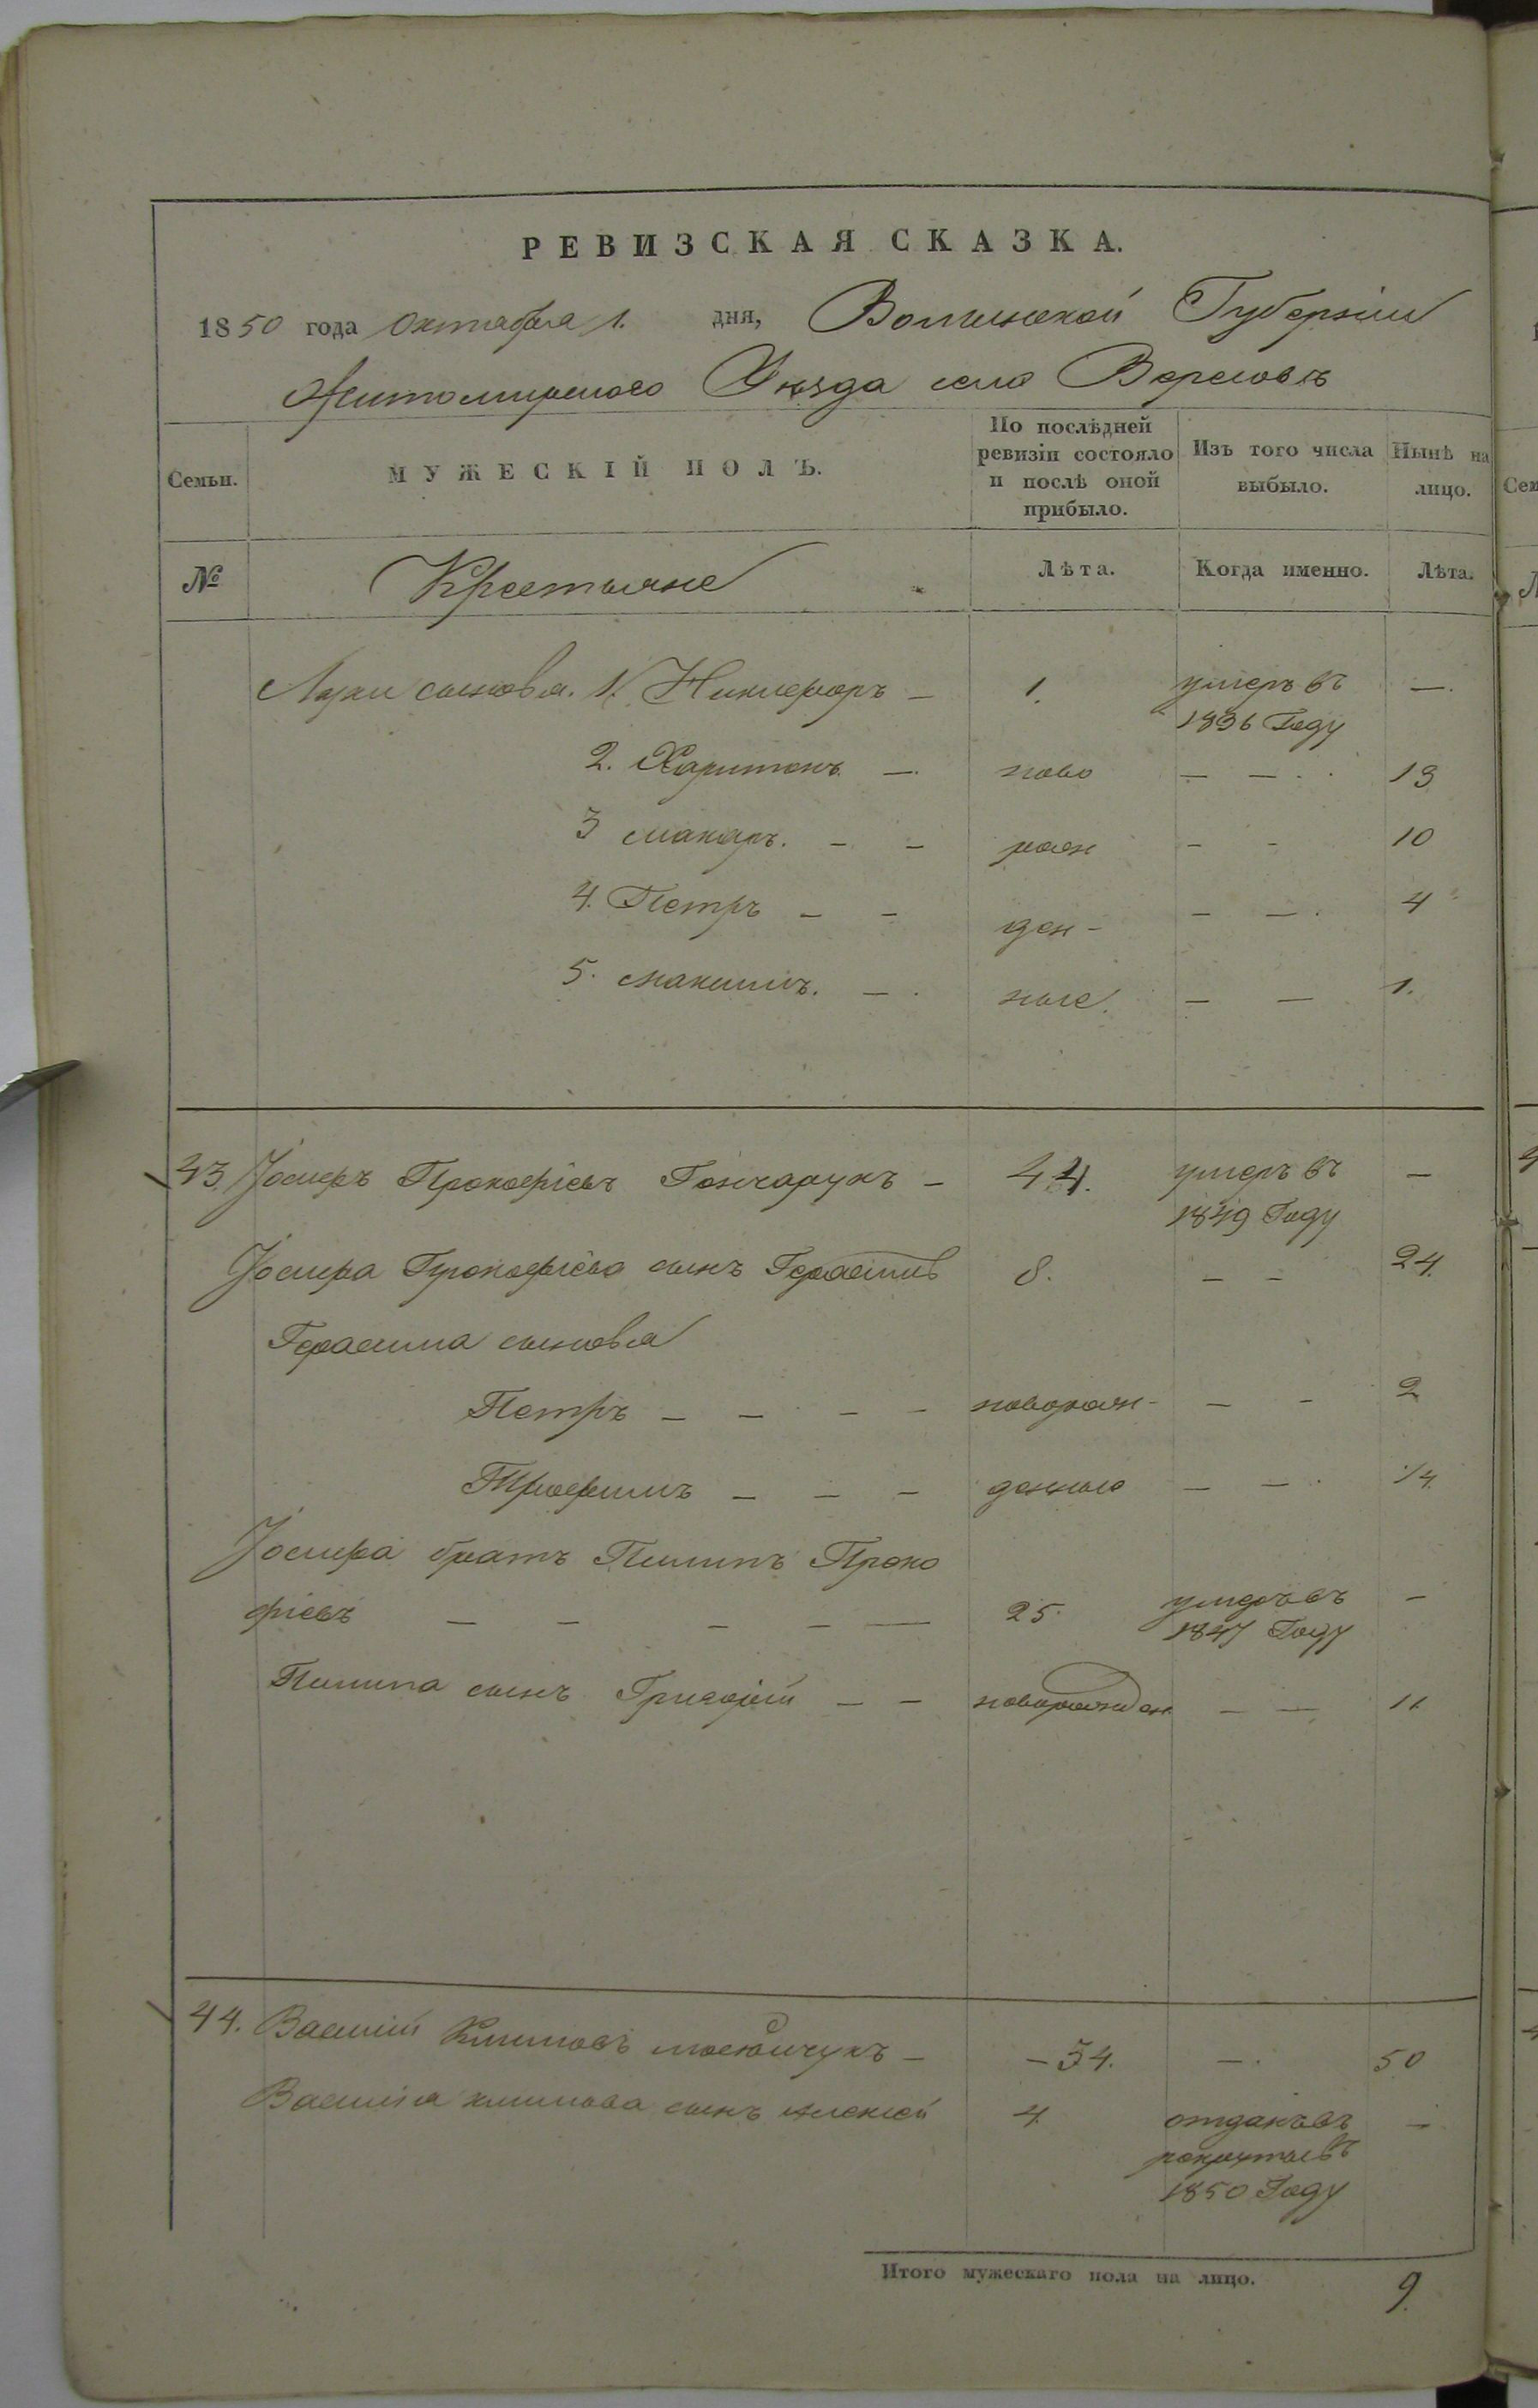 РЕВИЗСКАЯ СКАЗКА.
1850 года Октября 1. дня, Волынской Губернии
Житомирского Уезда села Вересовъ
Семьи. МУЖЕСКІЙ ПОЛЪ. По послѣдней ревизіи состояло и послѣ оной прибыло. Изъ того числа выбыло. Нынѣ на лицо.
№ Крестьяне Лѣта. Когда именно. Лѣта.
Луки сыновья. 1. Никифоръ — 1. умеръ въ —.
1836 Году
2. Харитонъ —. ново — — . . 13
3 Макаръ. — — рож — — 10
4. Петръ — — ден — — —. 4
5. Максимъ. — . ные. — — 1.
43. Іосифъ Прокофіевъ Гончарукъ — 44. умеръ въ —
1849 Году
Іосифа Прокофіева сынъ Герасимъ 8. — — 24.
Герасима сыновья
Петръ — — — — туть новорож- — — 2
Трофимъ — — — денные — — . 1/4.
Іосифа братъ Пилипъ Проко
фіевъ — — — — — 25. умеръ въ —
1847 Году
Пилипа сынъ Григорій — — новорожден. — — 11.
44. Василій Климовъ — — 34. —. 50
Василія Климова сынъ Алексей 4. отданъ въ —
рекруты въ
1850 Году
Итого мужескаго пола на лицо. 9.